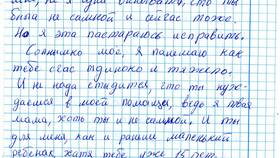 не я одна виновата, сто ты
била не самкой и сичас тоже.
Но я эта пастараюсь исправить.
Сонишко моё, я панемаю как
тебе счас одиноко и тяжело.
И не нада стидится, сто ты нуж-
даешся в моей помащи, ведь я твая
мама, хоть ты и не самкой. И ты
для меня, как и раньше маленький
ребёнак хатя тебе уже 15 лет.